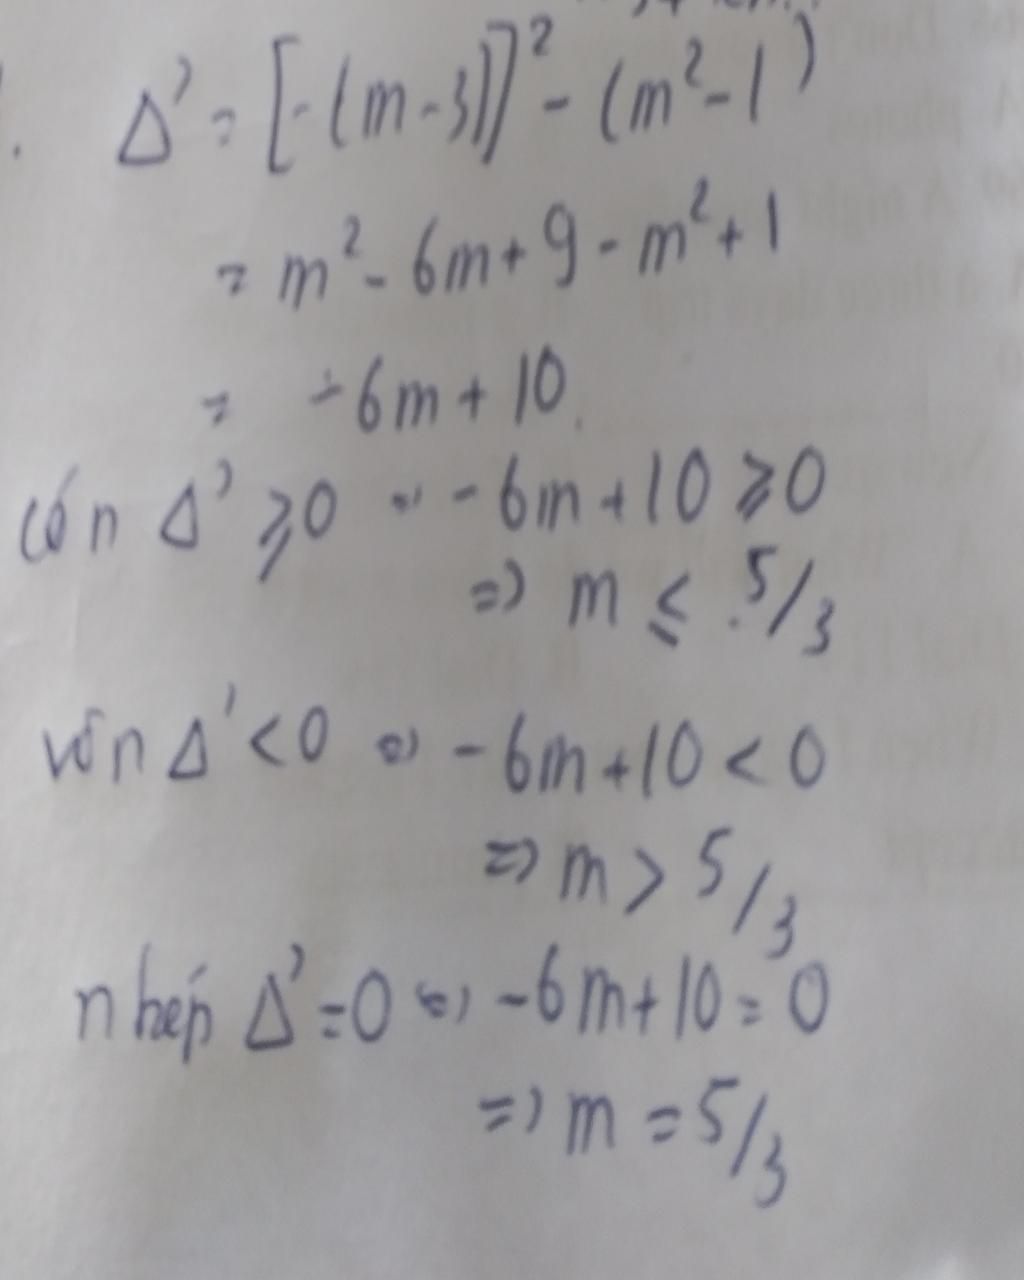 Δ' = [-(m-3)]² - (m²-1)
= m² - 6m + 9 - m² + 1
= -6m + 10
có n Δ' ≥ 0 ⇔ -6m + 10 ≥ 0
⇒ m ≤ 5/3
vô n Δ' < 0 ⇔ -6m + 10 < 0
⇒ m > 5/3
n kép Δ' = 0 ⇔ -6m + 10 = 0
⇒ m = 5/3